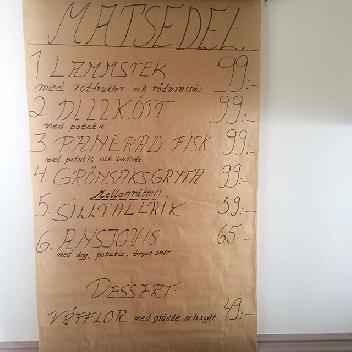 MATSEDEL.
1 LAMMSTEK 99:-
med rotfrukter och rödvinssås
2 DILLKÖTT 99:-
med potatis
3 PANERAD FISK 99:-
med potatis och
4. GRÖNSAKSGRYTA 99:-
Mellanrätter:
5. SILLTALLRIK 59:-
6. ANSJOVIS 65:-
med ägg, potatis, brynt smör
DESSERT
VÅFFLOR med grädde och sylt 49:-